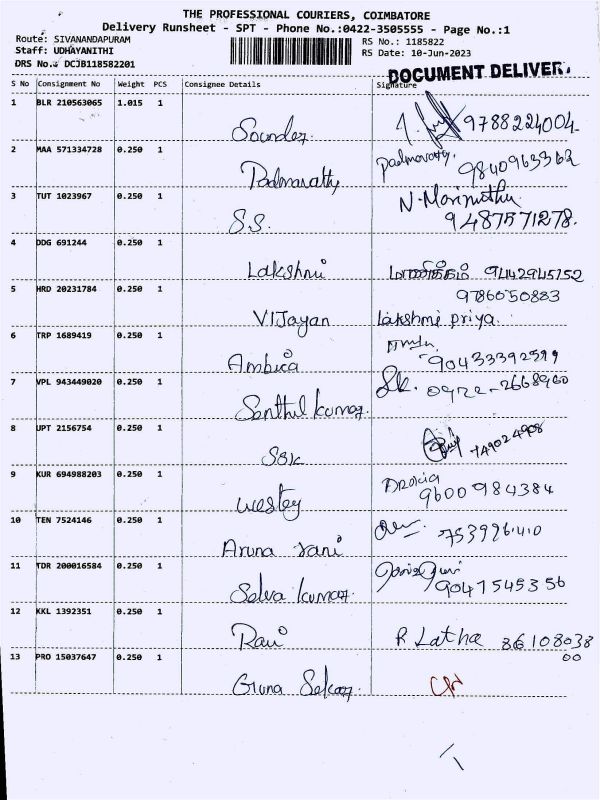 THE PROFESSIONAL COURIERS, COIMBATORE
Delivery Runsheet - SPT - Phone No.:0422-3505555 - Page No.:1
Route: SIVANANDAPURAM RS No.: 1185822
Staff: UDHAYANITHI RS Date: 10-Jun-2023
DRS No.: DCJB118582201
DOCUMENT DELIVER
S No Consignment No Weight PCS Consignee Details Signature
1 BLR 210563065 1.015 1 9788224004
Sounder
2 MAA 571334728 0.250 1 Padmavathy. 9840963362
Padmavathy
3 TUT 1023967 0.250 1 N. Marimuthu
S.S. 9487571278.
4 DDG 691244 0.250 1
Lakshmi 9442945752
5 HRD 20231784 0.250 1 9786050883
VIJayan Lakshmi priya.
6 TRP 1689419 0.250 1
Ambica 90433392599
7 VPL 943449020 0.250 1 SK. 0422-2668960
Senthil kumar.
8 UPT 2156754 0.250 1 749024908
SBK
9 KUR 694988203 0.250 1 Arokia
westey 9600984384
10 TEN 7524146 0.250 1 753996410
Aruna rani
11 TDR 200016584 0.250 1 9047545356
Selva kumar.
12 KKL 1392351 0.250 1 R Latha 86108038
Ravi 00
13 PRO 15037647 0.250 1
Guna Sekar